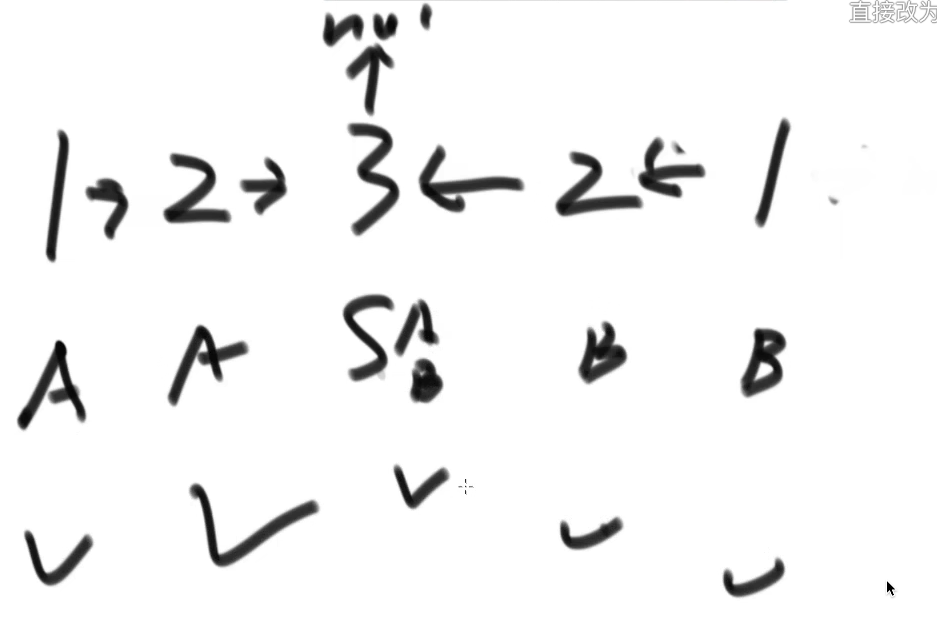 直接改为
null
1 → 2 → 3 ← 2 ← 1
A A S A B B
B